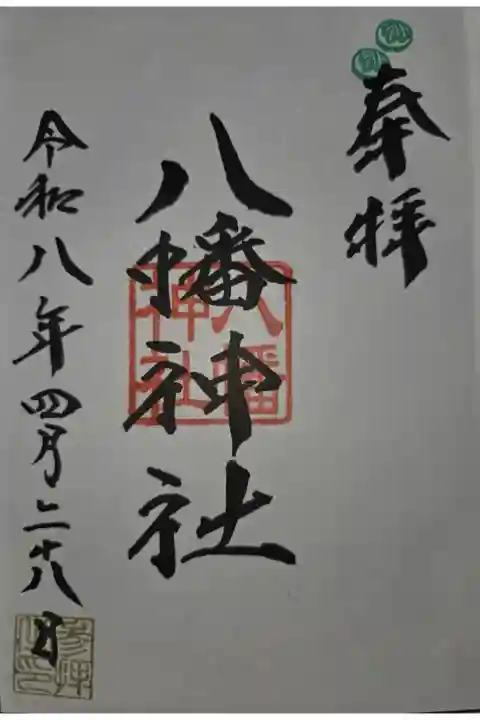 奉拝
八幡神社
八幡神社
令和八年四月二十八日